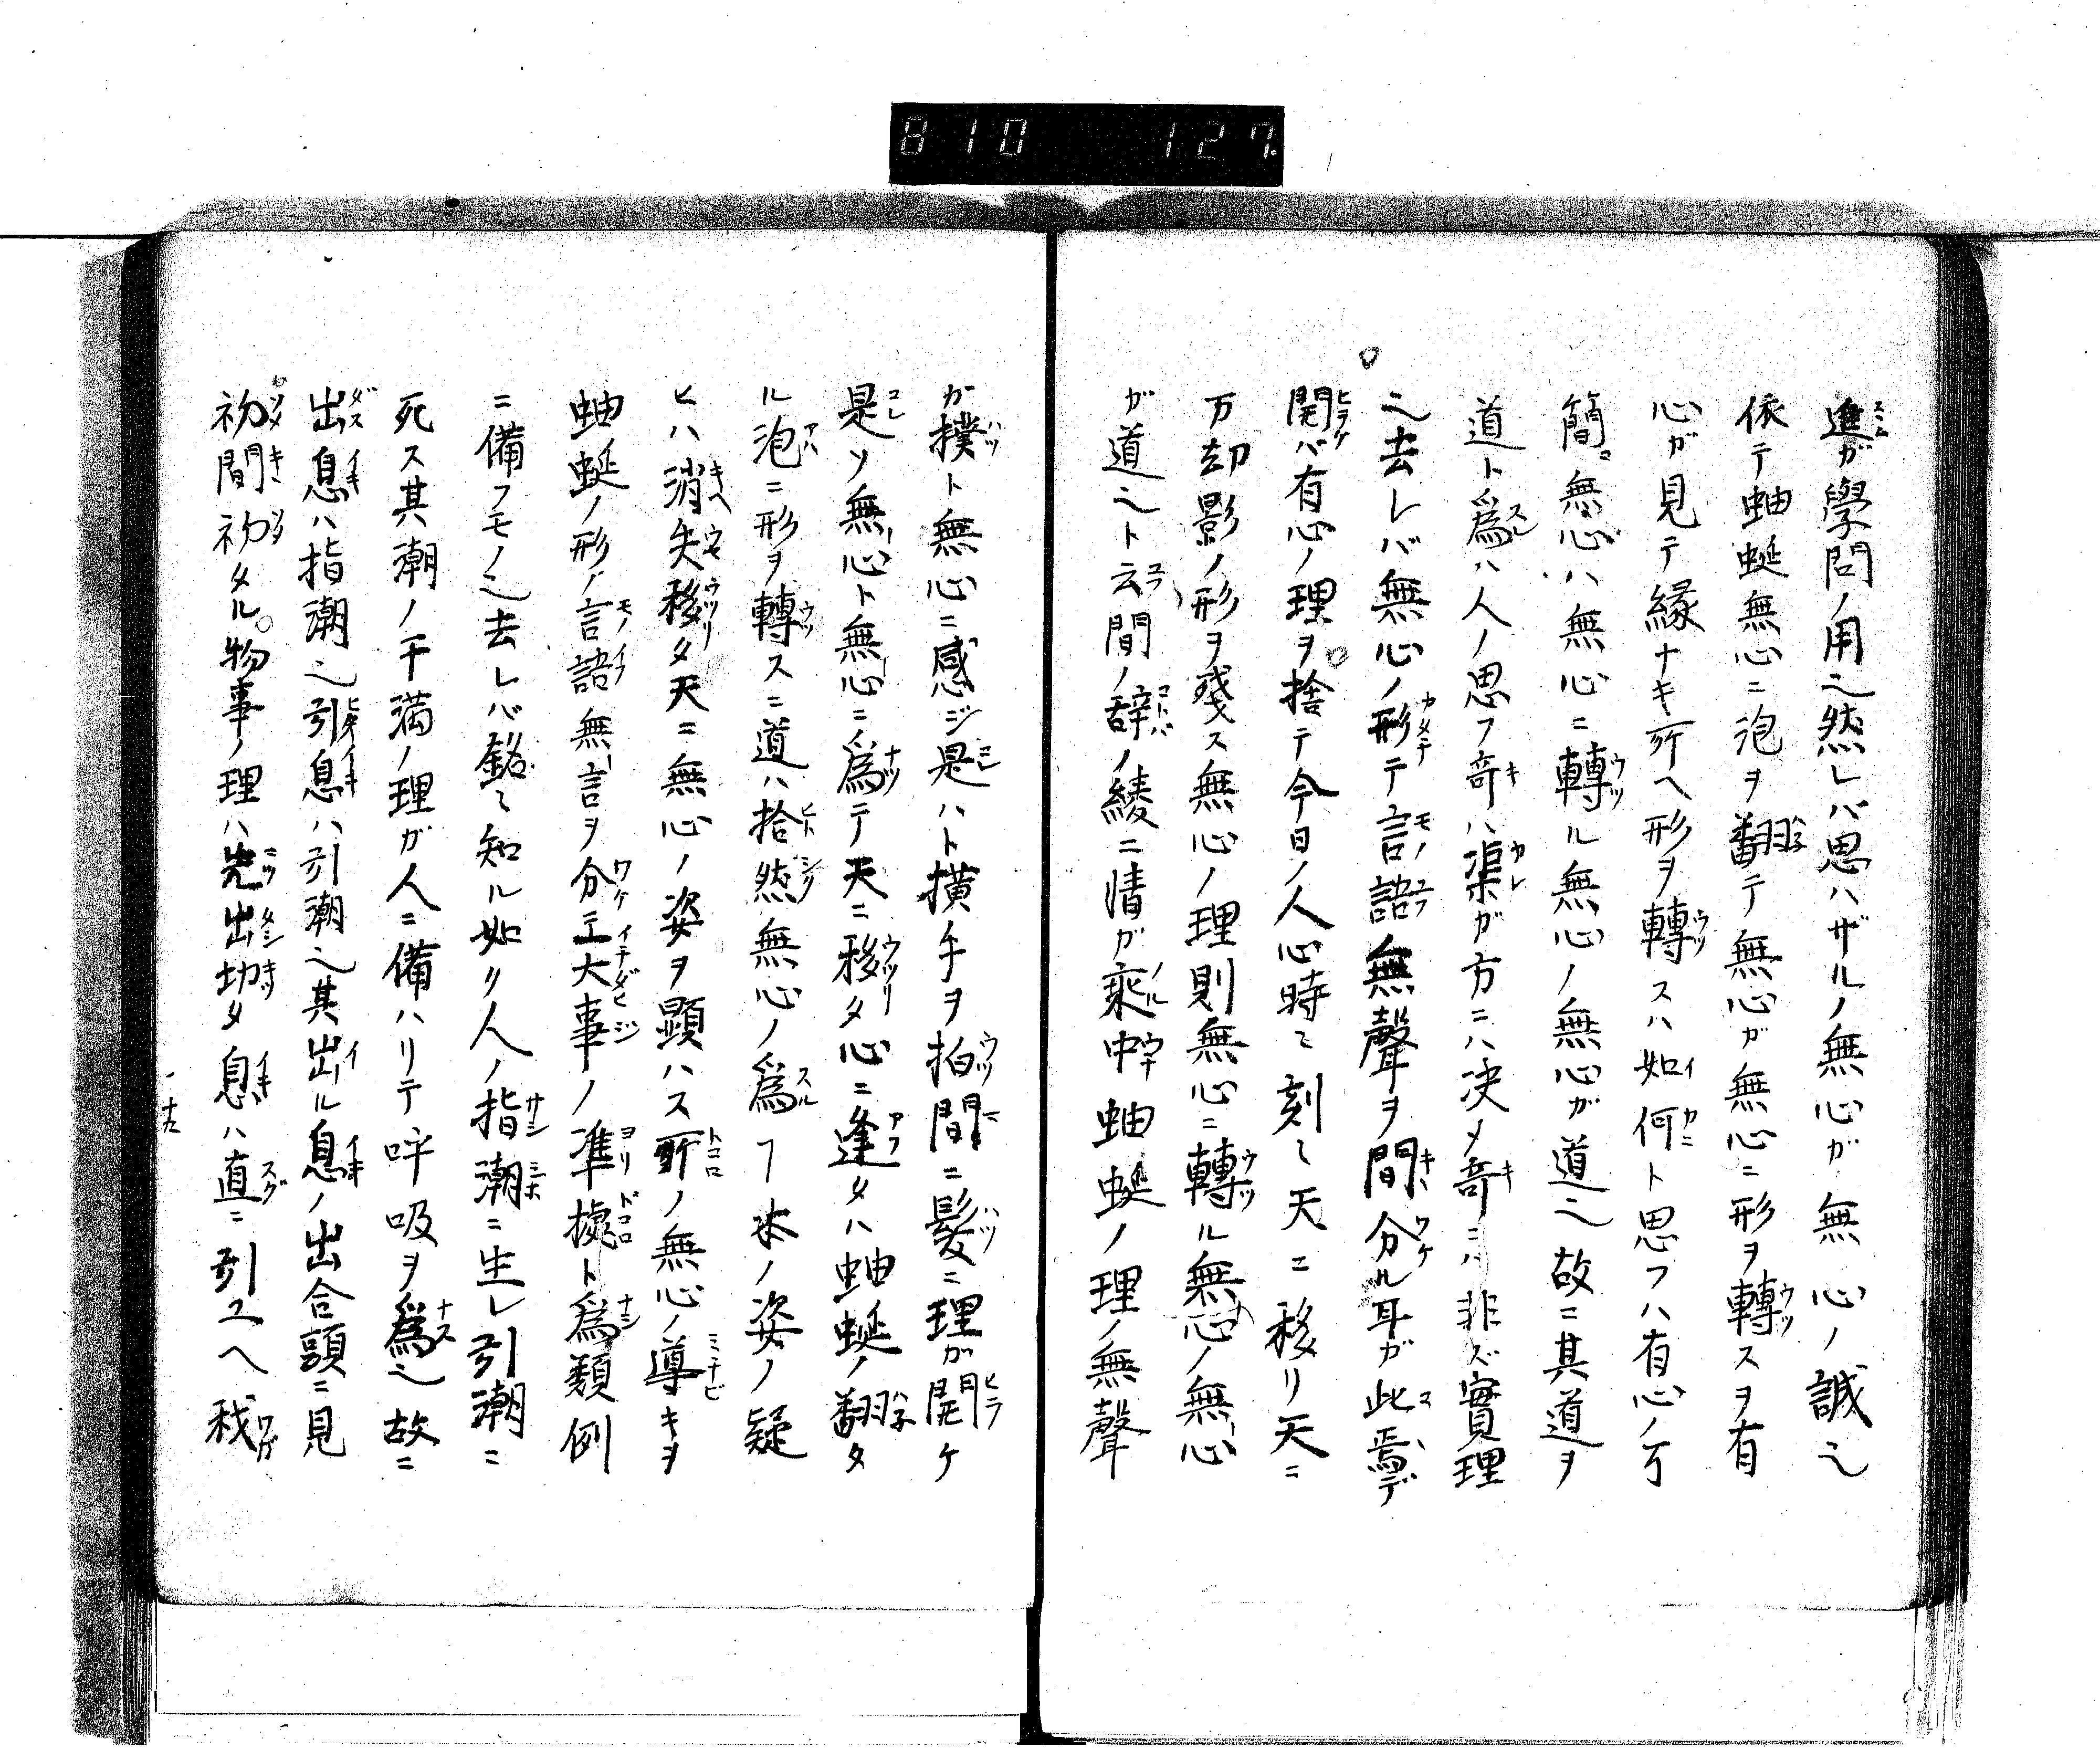 810 127
進ガ學問ノ用之然レバ思ハザルノ無心ガ無心ノ誠之
依テ蚰蜒無心ニ泡ヲ翻テ無心ガ無心ニ形ヲ轉スヲ有
心ガ見テ縁ナキ所ヘ形ヲ轉スハ如何ト思フハ有心ノ了
簡無心ハ無心ニ轉ル無心ノ無心ガ道之故ニ其道ヲ
道ト爲ハ人ノ思フ奇ハ渠ガ方ニハ決メ奇ニハ非ズ實理
之去レバ無心ノ形テ言語無聲ヲ聞分ル耳ガ此焉デ
開バ有心ノ理ヲ捨テ今日ノ人心時々刻々天ニ移リ天ニ
万却影ノ形ヲ残ス無心ノ理則無心ニ轉ル無心ノ無心
ガ道之ト云間ノ辭ノ綾ニ情ガ乘中蚰蜒ノ理ノ無聲
ガ撲ト無心ニ感ジ是ハト横手ヲ拍間ニ髪ニ理ガ開ケ
是ソ無心ト無心ニ爲テ天ニ移タ心ニ逢タハ蚰蜒ノ翻タ
ル泡ニ形ヲ轉スニ道ハ拾然無心ノ爲ヿ水ノ姿ノ疑
ヒハ消失移タ天ニ無心ノ姿ヲ顕ハス所ノ無心ノ導キヲ
蚰蜒ノ形ノ言語無言ヲ分工大事ノ準據ト爲類例
ニ備フモノ之去レバ銘々知ル如リ人ノ指潮ニ生レ引潮ニ
死ス其潮ノ干満ノ理ガ人ニ備ハリテ呼吸ヲ爲之故ニ
出息ハ指潮之引息ハ引潮之其出ル息ノ出合頭ニ見
初聞初タル物事ノ理ハ先出切タ息ハ直ニ引ユヘ我
十九